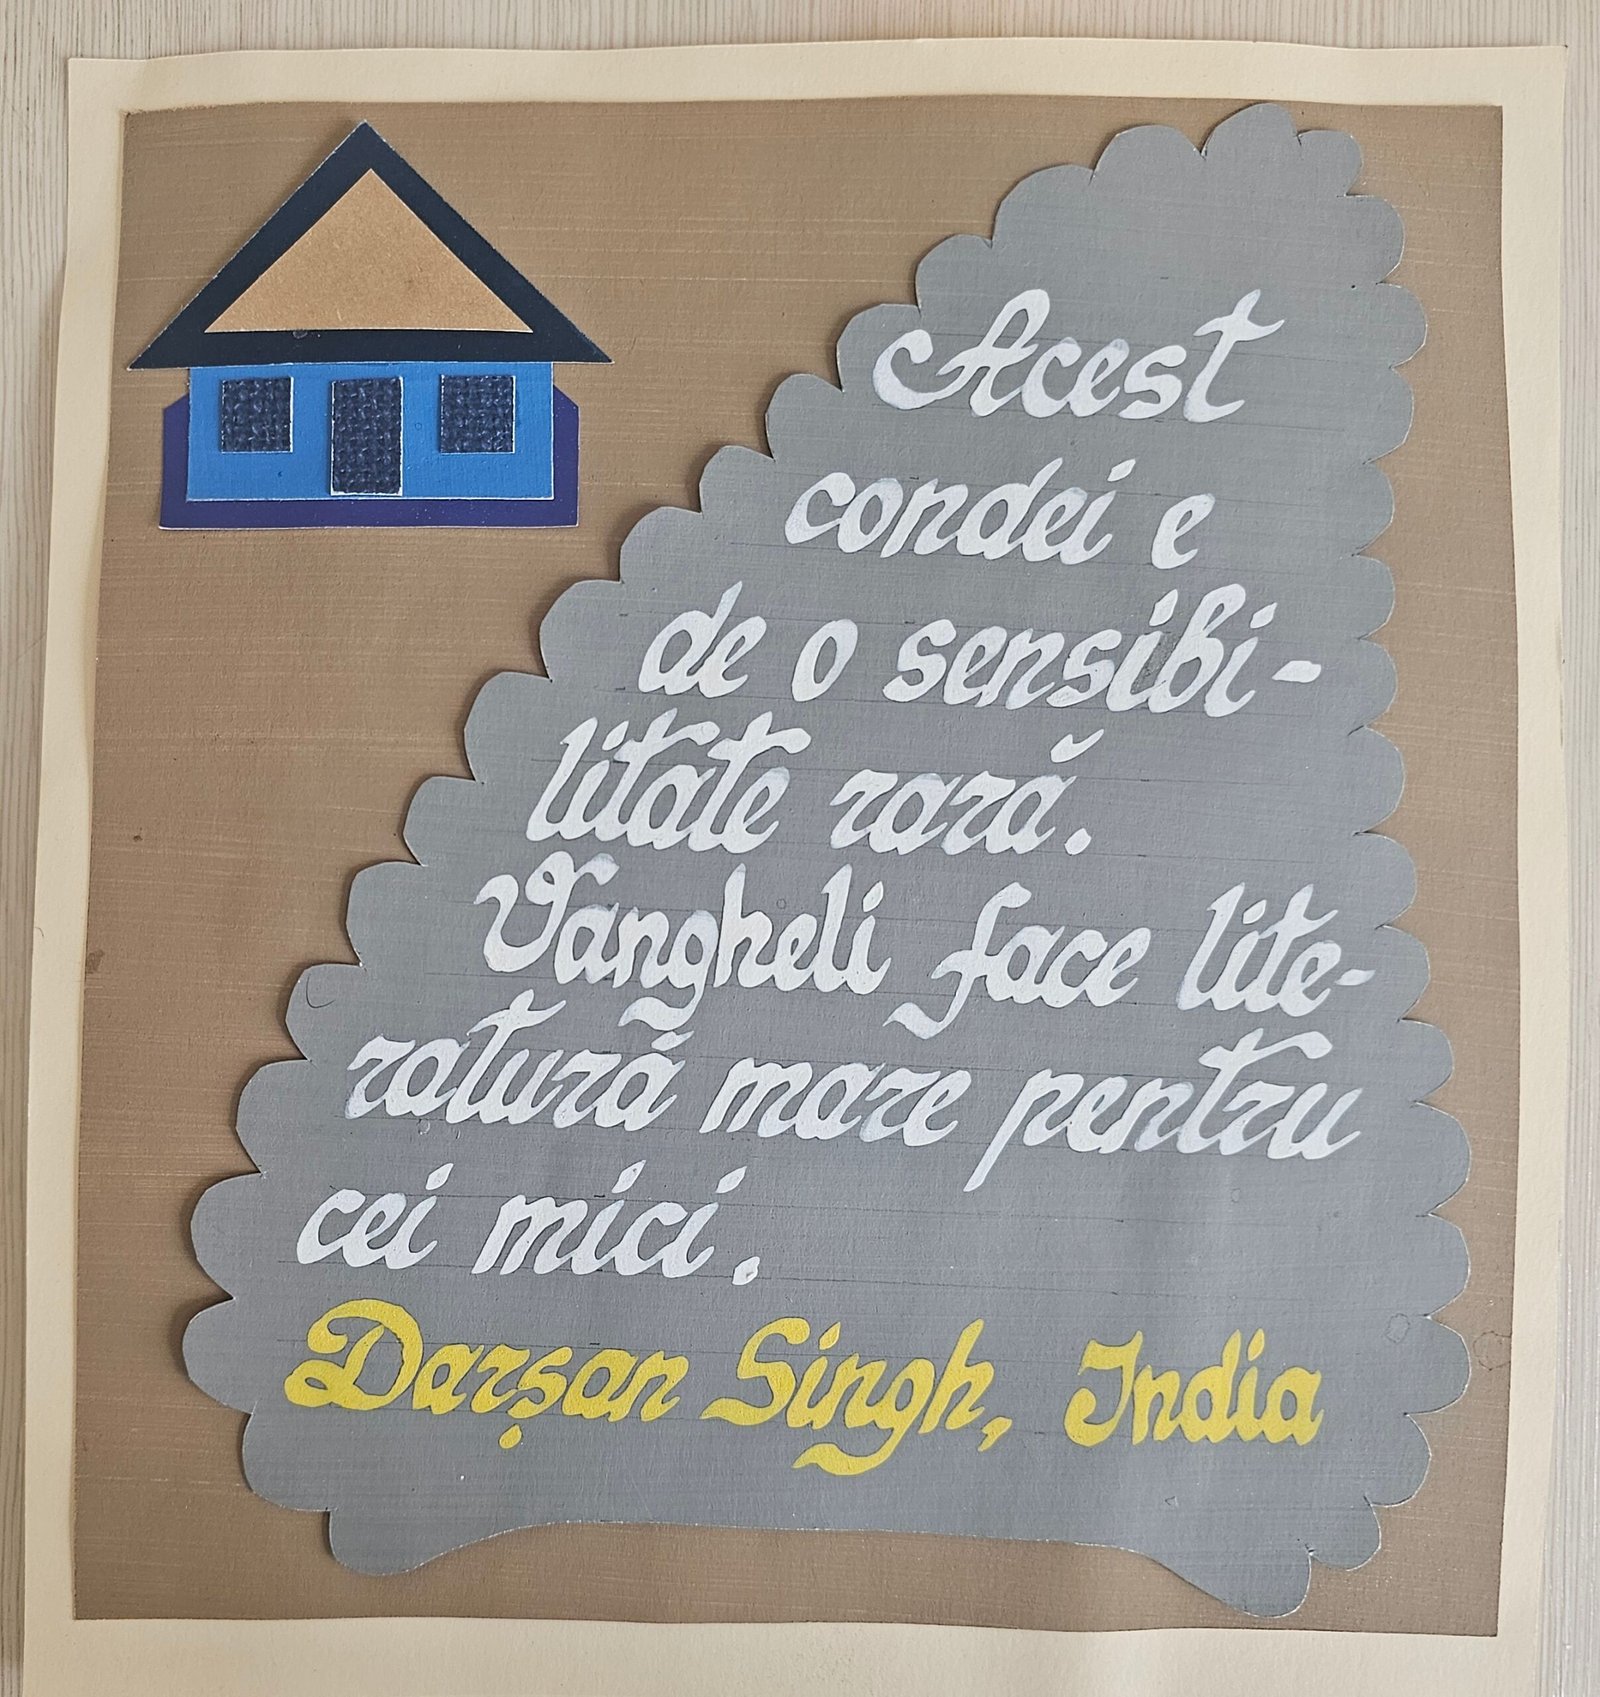 Acest
condei e
de o sensibi-
litate rară.
Vangheli face lite-
ratură mare pentru
cei mici.
Darșan Singh, India